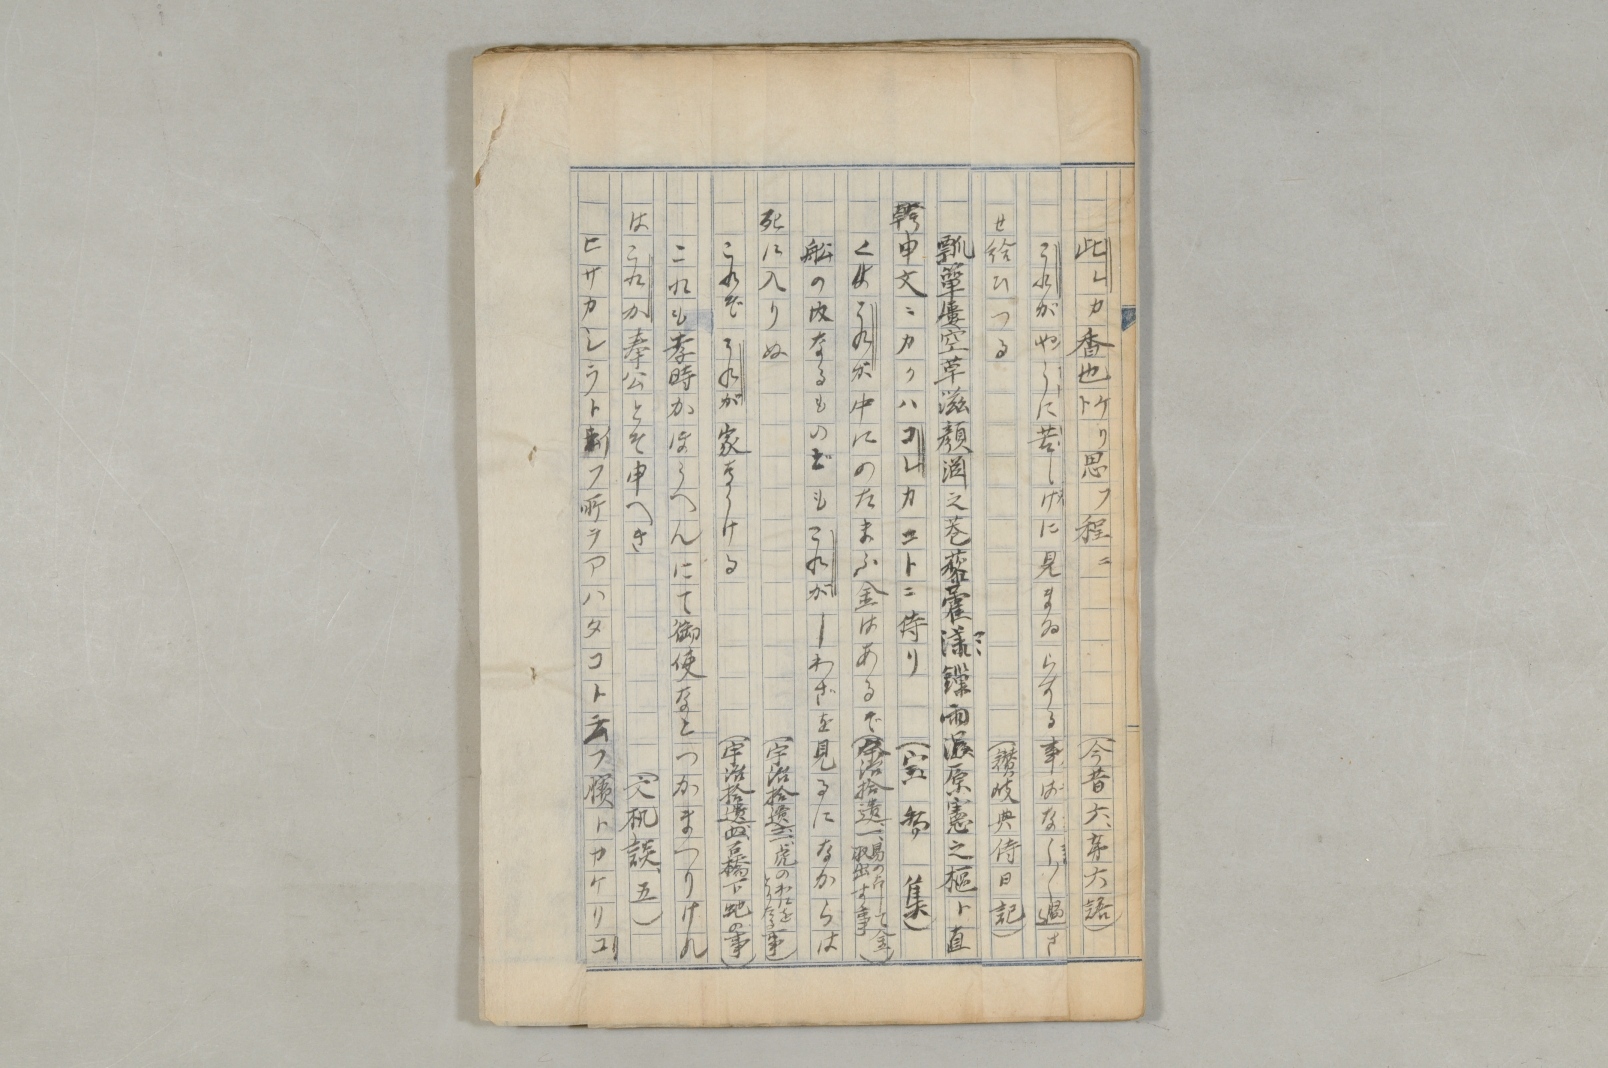 此レカ香也トケリ思フ程ニ (今昔六、第六語)
これがやうに苦しげに見まゐらする事おなじ過さ
せ給ひつる (讃岐典侍日記)
瓢箪屡空草滋顔淵之巷藜藿深鎖雨湿原憲之枢ト直
幹申文ニカクハコレカコトニ侍リ (宝物集)
くは これが中にのたまふ金はあるぞ (宇治拾遺一、易の占して金取出す事)
船の内なるものどもこれがしわざを見るになからは
死に入りぬ (宇治拾遺六、虎のわにをとりたる事)
これぞ これが家なりける (宇治拾遺四、石橋下蛇の事)
これも孝時かほうへんにて御使なとつかまつりけれ
はこれか奉公とそ申へき (文机談、五)
ヒサカシラト云フ所ヲアハタコト云フ トカケリコ